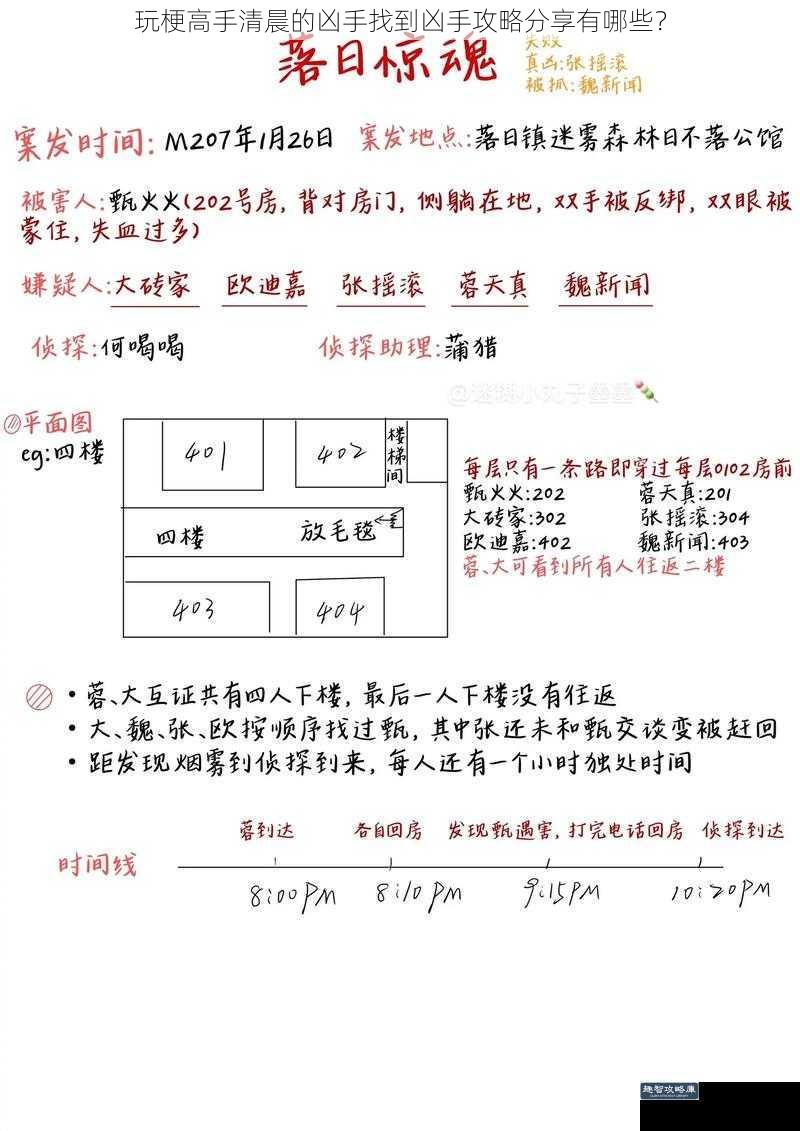 玩梗高手清晨的凶手找到凶手攻略分享有哪些?
落日惊魂
失败
真凶:张摇滚
被抓:魏新闻
案发时间: M207年1月26日 案发地点:落日镇迷雾森林日不落公馆
被害人:甄火火(202号房, 背对房门, 侧躺在地, 双手被反绑, 双眼被
蒙住, 失血过多)
嫌疑人:大砖家 欧迪嘉 张摇滚 蓉天真 魏新闻
侦探:何喝喝 侦探助理:蒲猎
平面图
eg:四楼
401
402
楼梯间
四楼
放毛毯
403
404
每层只有一条路即穿过每层0102房前
甄火火:202 蓉天真:201
大砖家:302 张摇滚:304
欧迪嘉:402 魏新闻:403
蓉、大可看到所有人往返二楼
• 蓉、大互证共有四人下楼, 最后一人下楼没有往返
• 大、魏、张、欧按顺序找过甄, 其中张还未和甄交谈变被赶回
• 距发现烟雾到侦探到来, 每人还有一个小时独处时间
蓉到达 各自回房 发现甄遇害, 打完电话回房 侦探到达
时间线
8:00PM 8:10PM 9:15PM 10:20PM